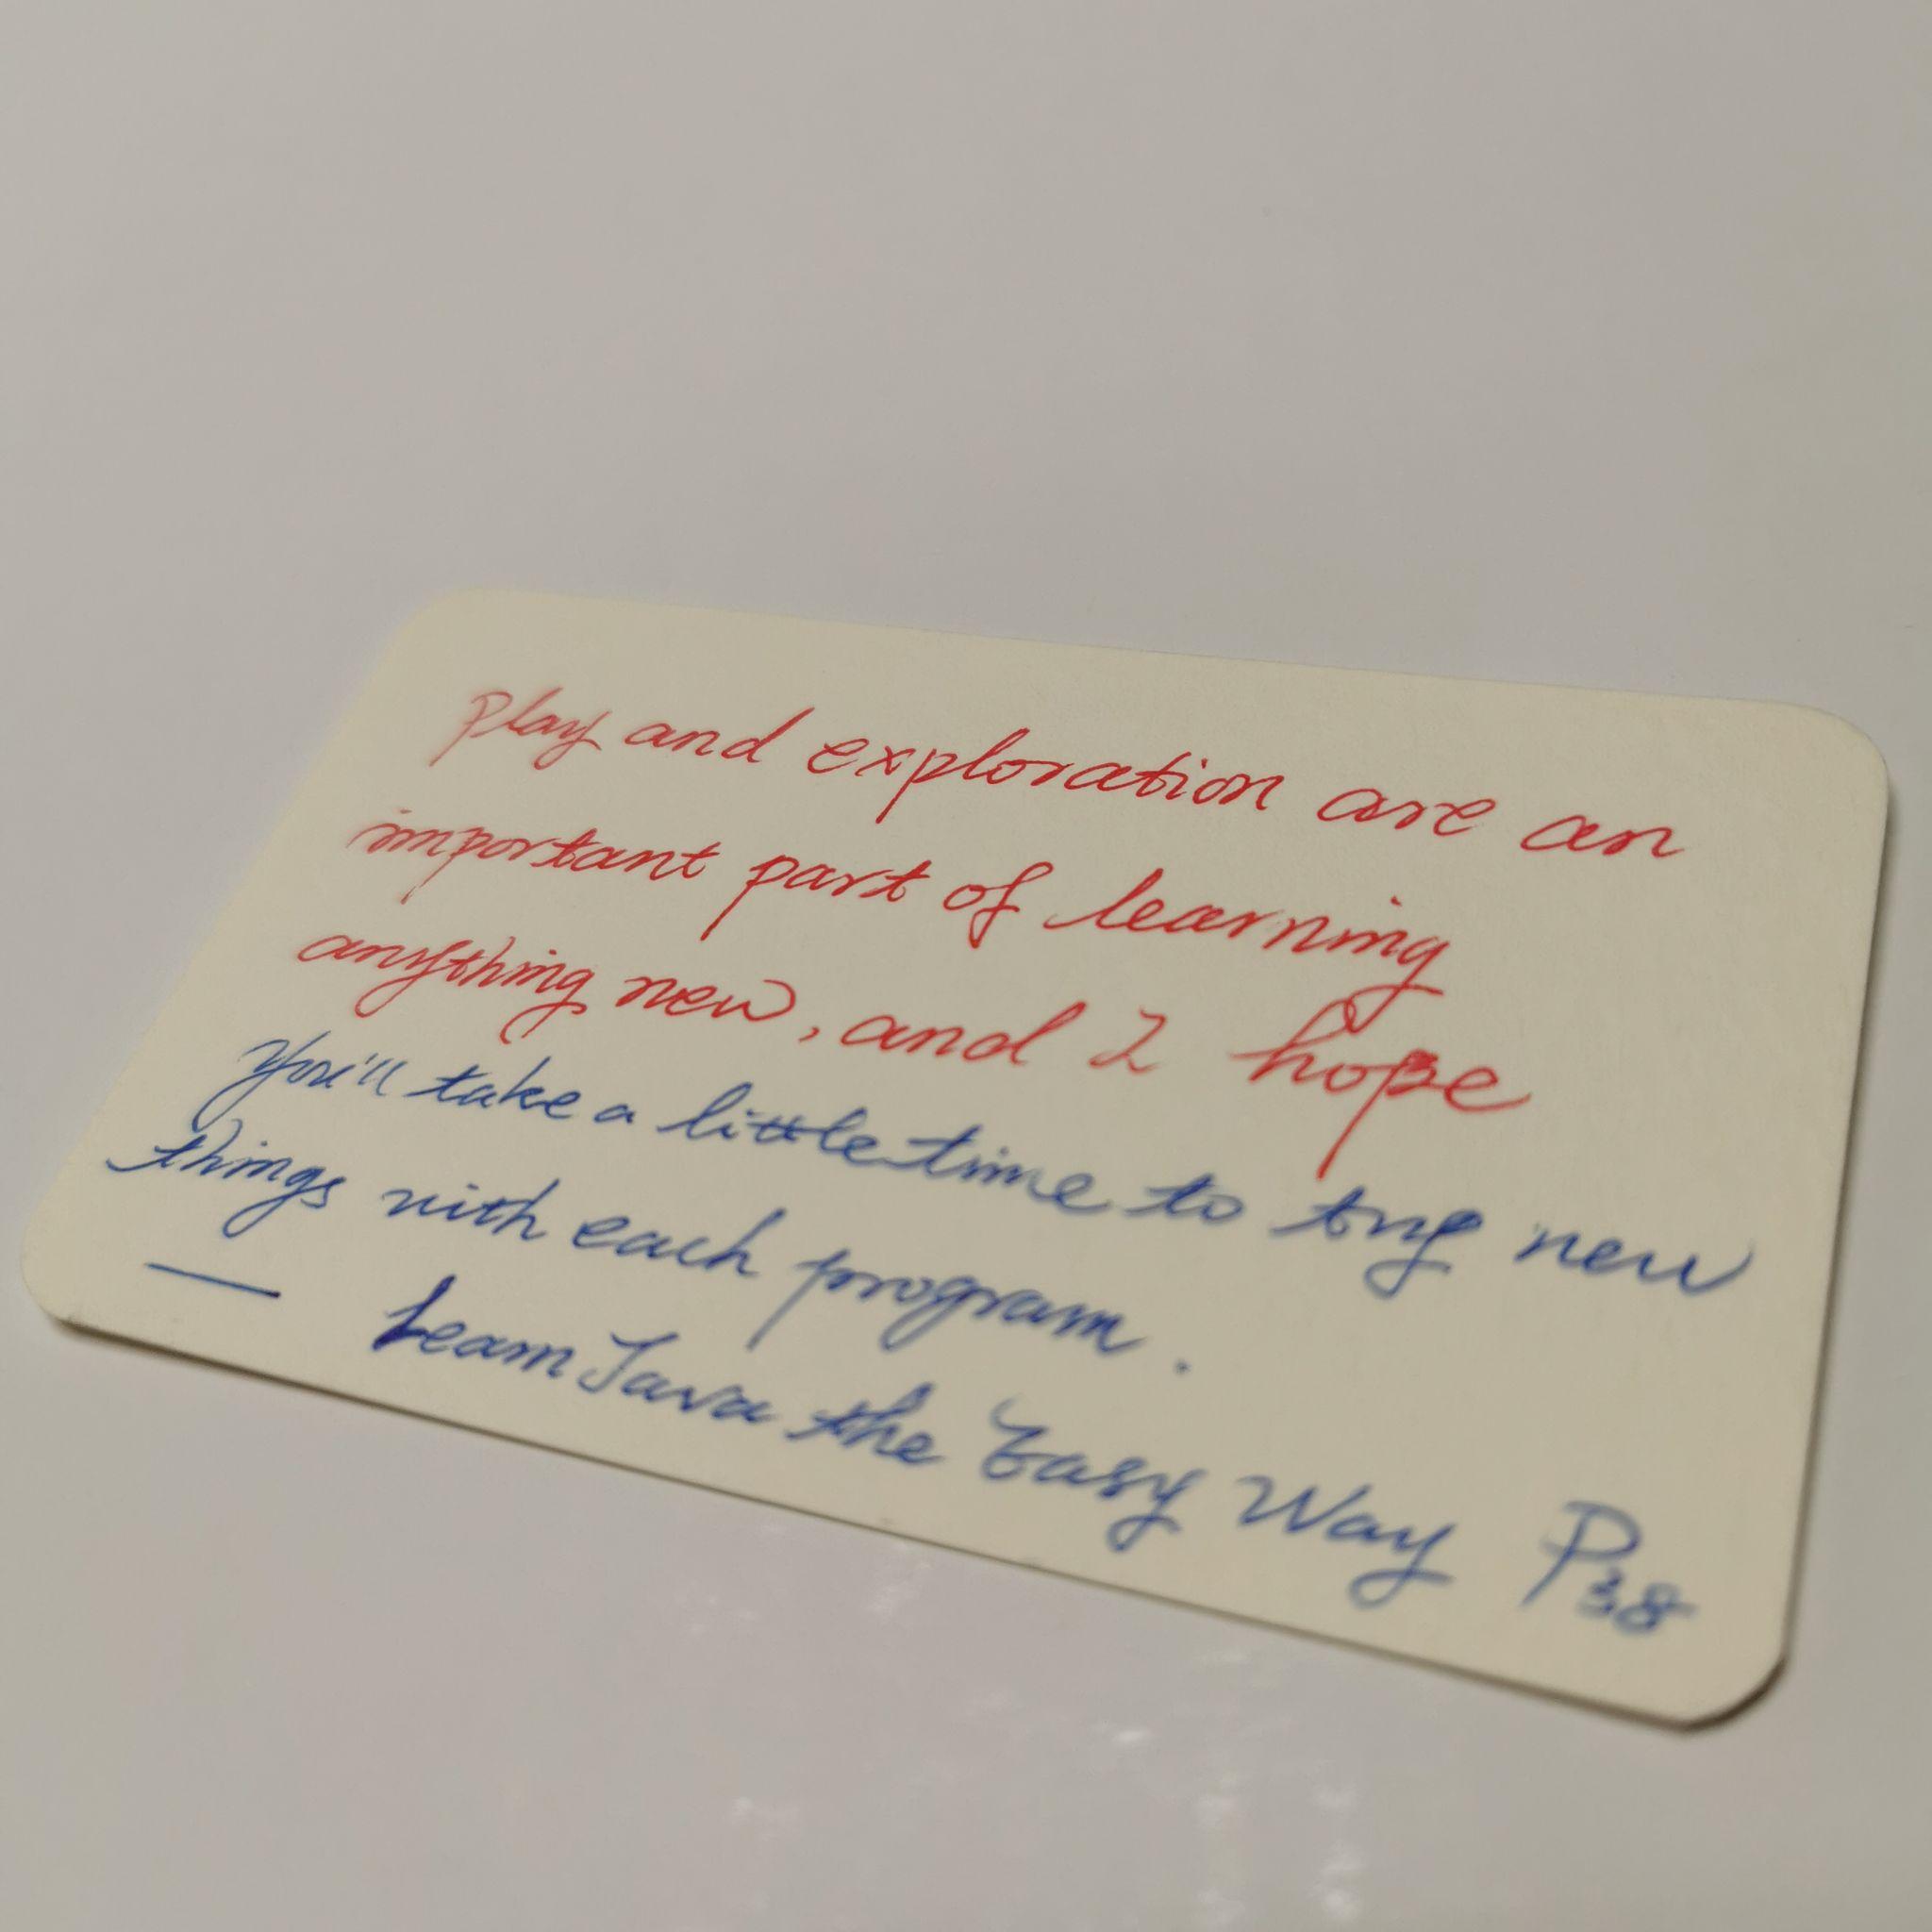 Play and exploration are an
important part of learning
anything new, and I hope
you'll take a little time to try new
things with each program.
— Learn Java the Easy Way P38